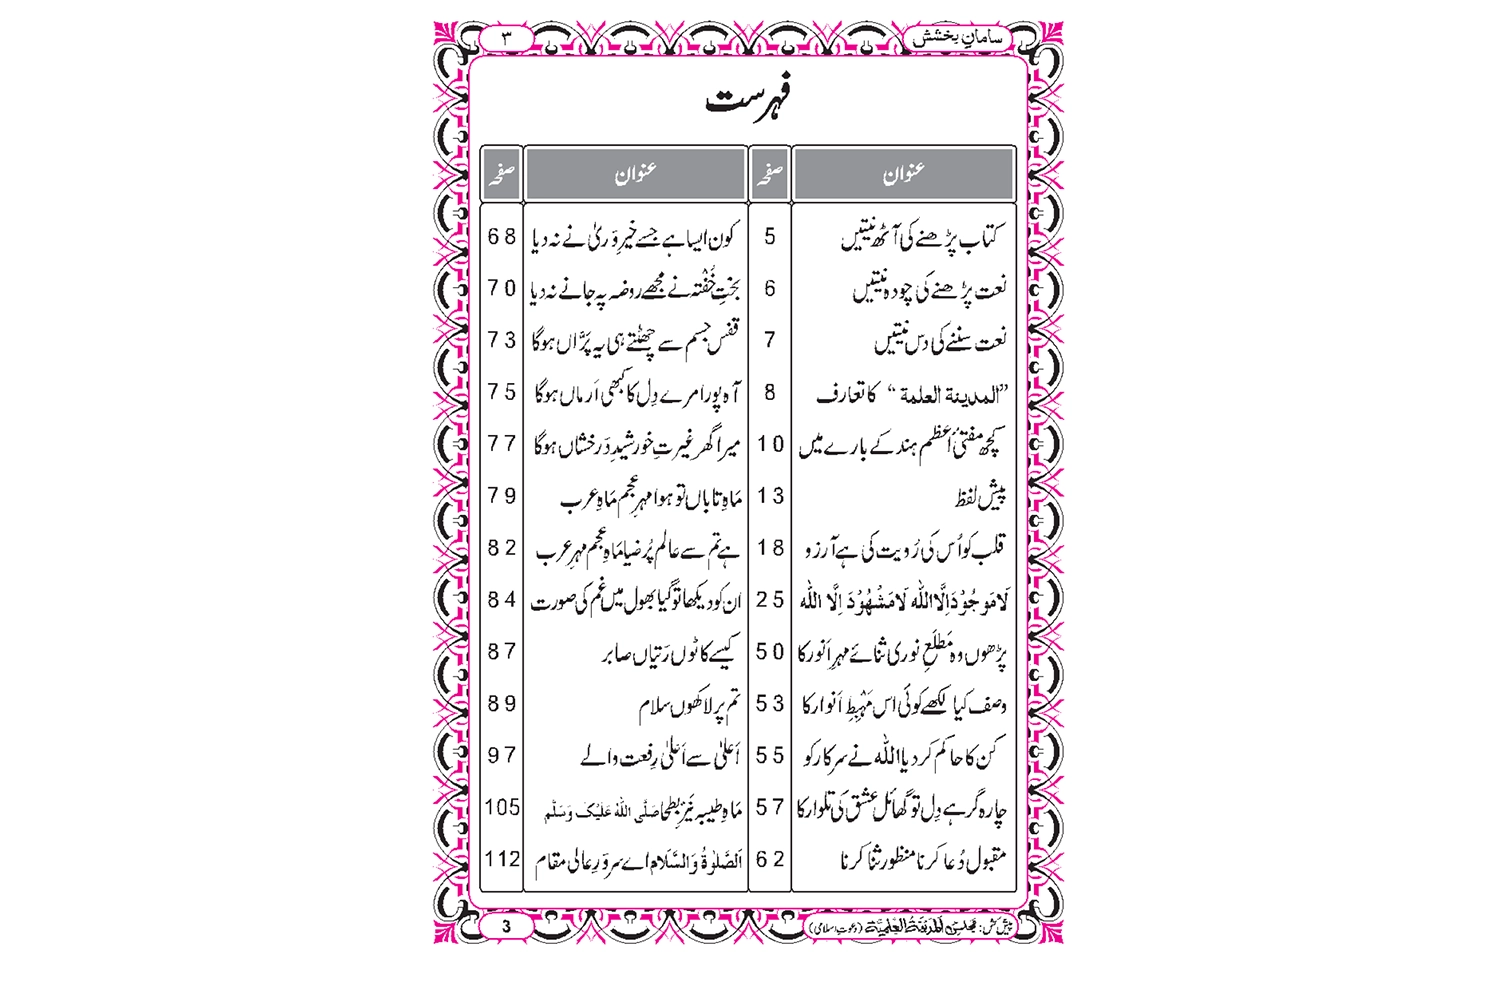 سامانِ بخشش
۳
فہرست
عنوان صفحہ عنوان صفحہ
کتاب پڑھنے کی آٹھ نیتیں 5 کون ایسا ہے جسے خیرِ وَریٰ نے نہ دیا 68
نعت پڑھنے کی چودہ نیتیں 6 بختِ خُفتہ نے مجھے روضہ پہ جانے نہ دیا 70
نعت سننے کی دس نیتیں 7 قفسِ جسم سے چھٹتے ہی یہ پَرَّاں ہوگا 73
”المدینۃ العلمۃ“ کا تعارف 8 آہ پورا مرے دِل کا کبھی اَرماں ہوگا 75
کچھ مفتیٔ اَعظم ہند کے بارے میں 10 میرا گھر غیرتِ خورشیدِ دَرخشاں ہوگا 77
پیش لفظ 13 مَاہِ تاباں تو ہوا مہرِ عجم مَاہِ عرب 79
قلب کو اُس کی رُویت کی ہے آرزو 18 ہے تم سے عالم پُرضیا مَاہِ عجم مہرِ عرب 82
لَا مَوجُوْدَ اِلَّا اللہ لَا مَشْہُوْدَ اِلَّا اللہ 25 ان کو دیکھا تو گیا بھول میں غم کی صورت 84
پڑھوں وہ مَطلَعِ نوری ثنائے مہرِ اَنور کا 50 کیسے کاٹوں رَتیاں صابر 87
وصف کیا لکھے کوئی اس مَہْبِطِ اَنوار کا 53 تم پر لاکھوں سلام 89
کن کا حاکم کردیا اللہ نے سرکار کو 55 اَعلیٰ سے اَعلیٰ رِفعت والے 97
چارہ گر ہے دِل تو گھائل عشق کی تلوار کا 57 مَاہِ طیبہ نَیّرِ بطحا صَلَّی اللہُ عَلَیْکَ وَسَلَّم 105
مقبول دُعا کرنا منظور ثنا کرنا 62 اَلصَّلٰوۃُ وَالسَّلَام اے سرورِ عالی مقام 112
پیش کش: مجلس المدینۃ العلمیۃ (دعوتِ اسلامی)
3